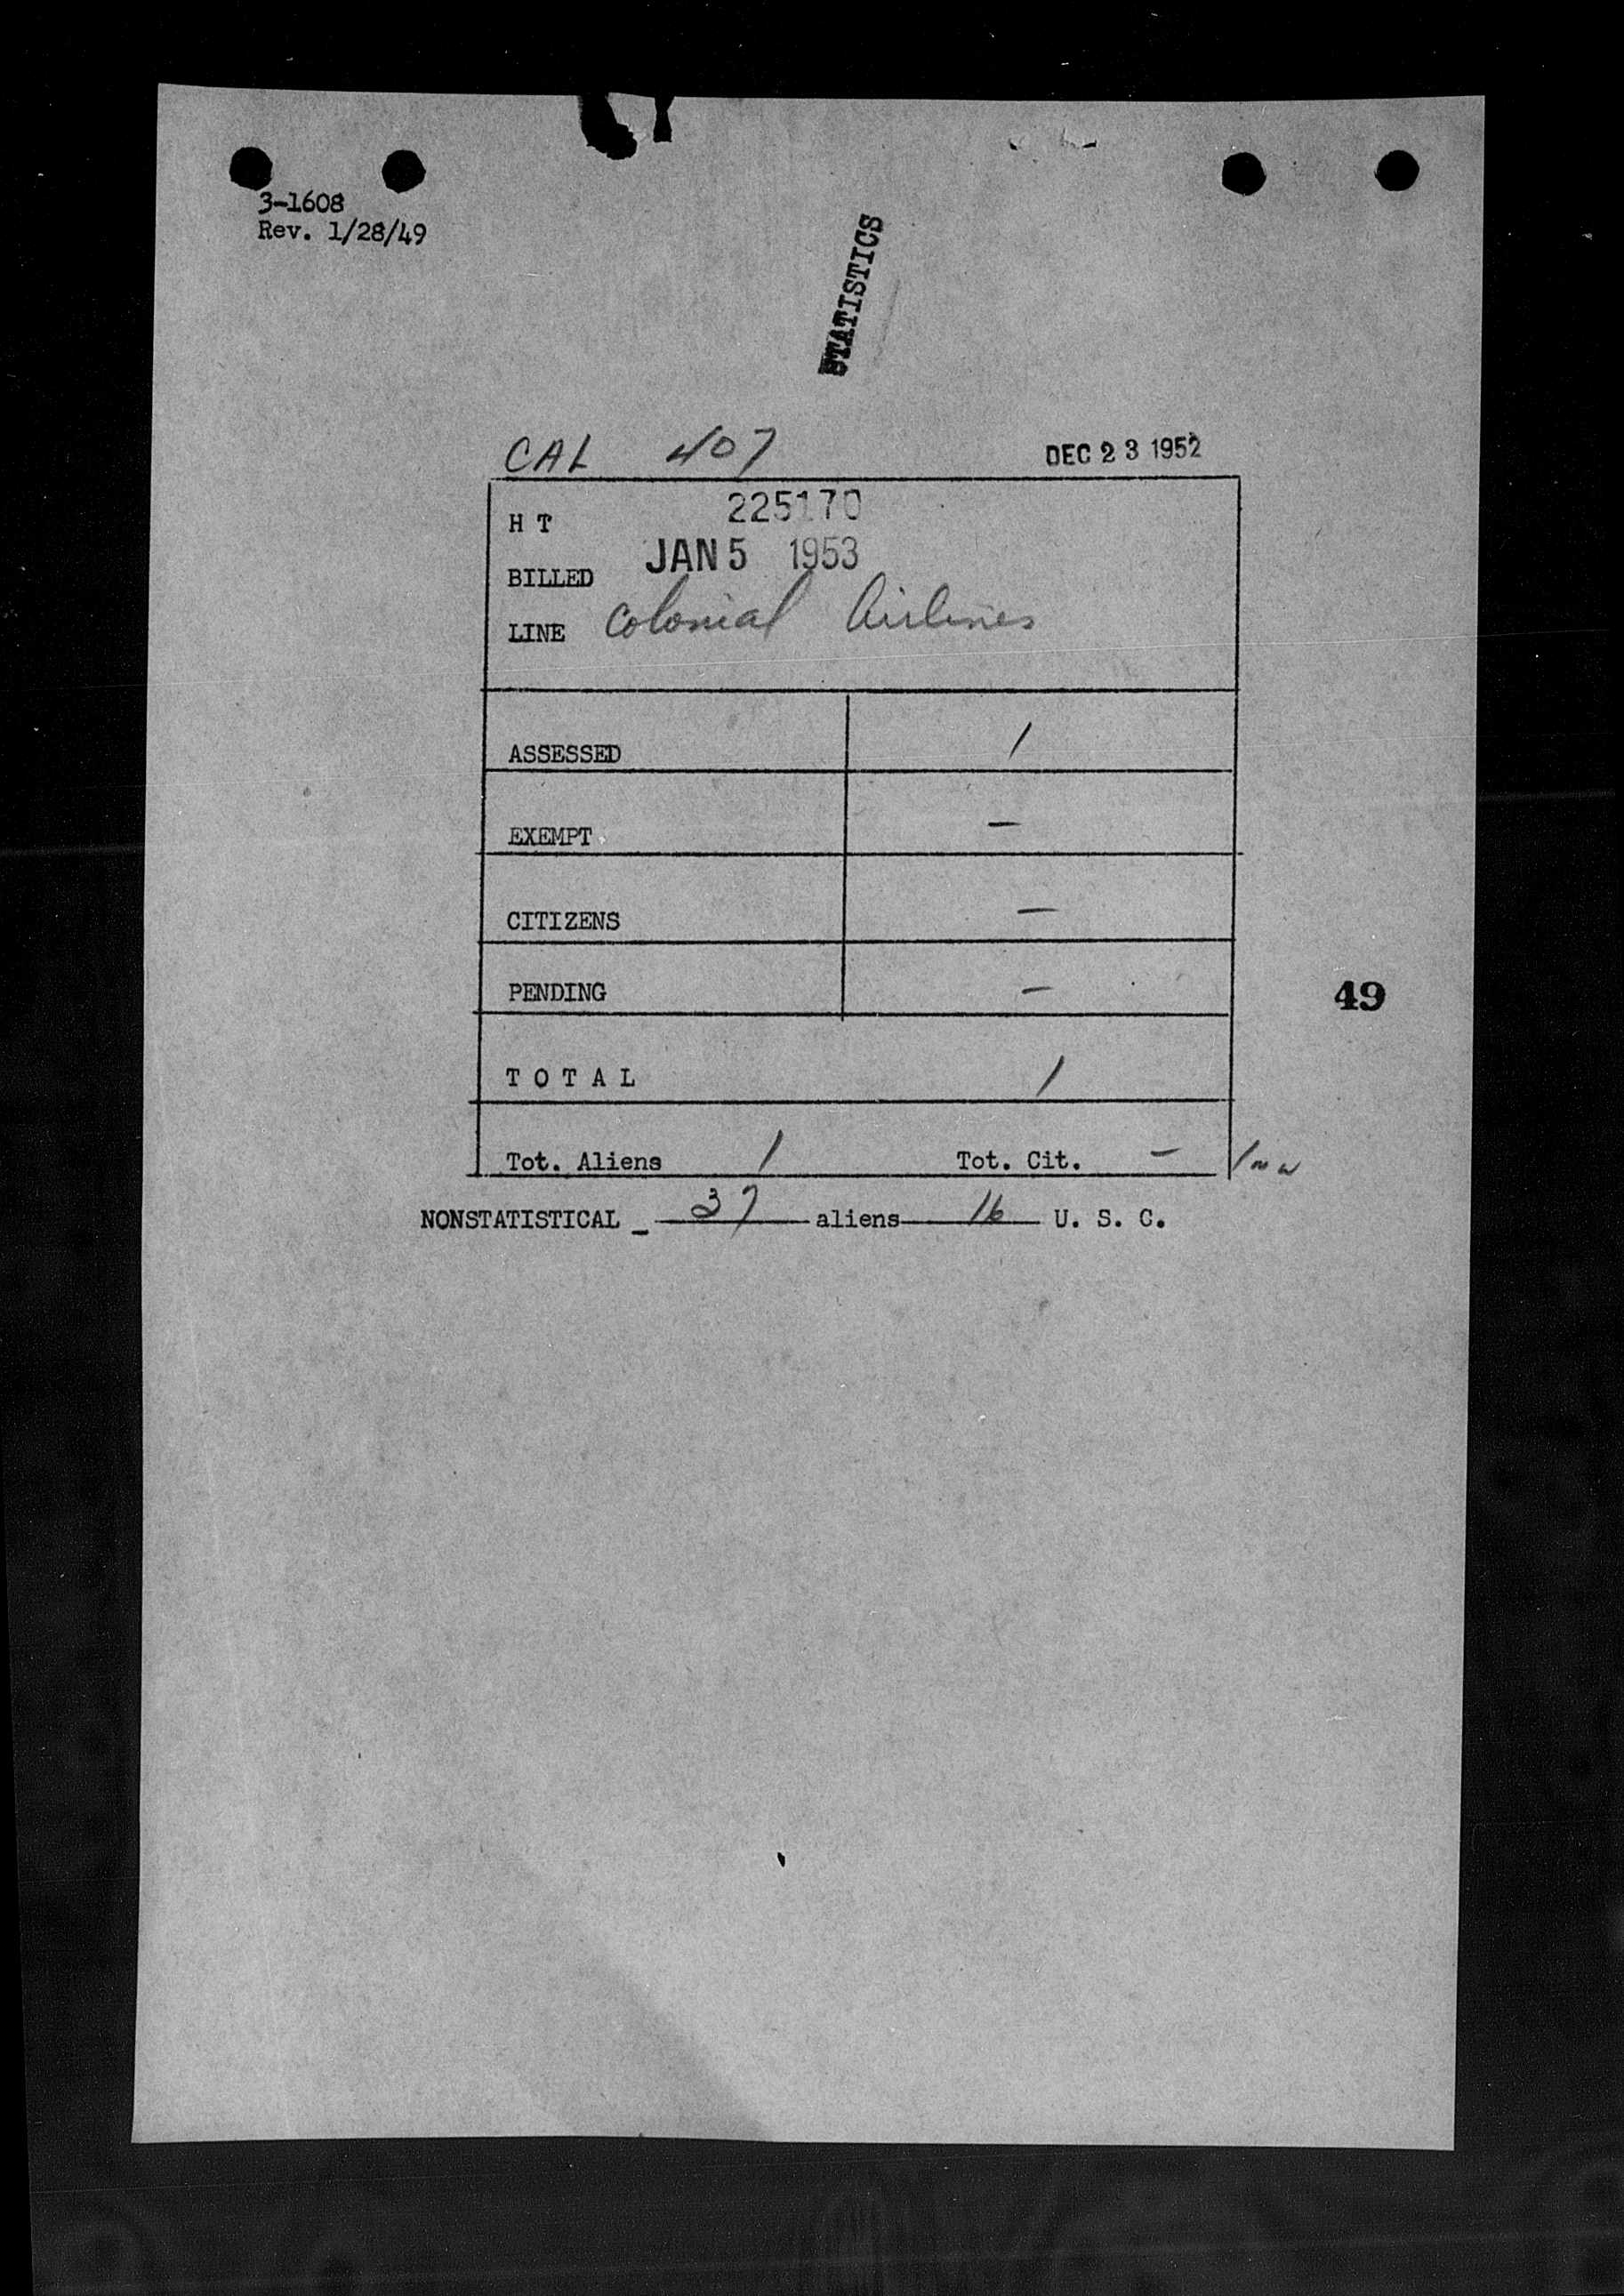 3-1608
Rev. 1/28/49
STATISTICS
CAL 407 DEC 23 1952
H T 225170
BILLED JAN 5 1953
LINE Colonial Airlines
ASSESSED 1
EXEMPT —
CITIZENS —
PENDING —
49
T O T A L 1
Tot. Aliens 1 Tot. Cit. —
NONSTATISTICAL - 37 aliens 16 U. S. C.